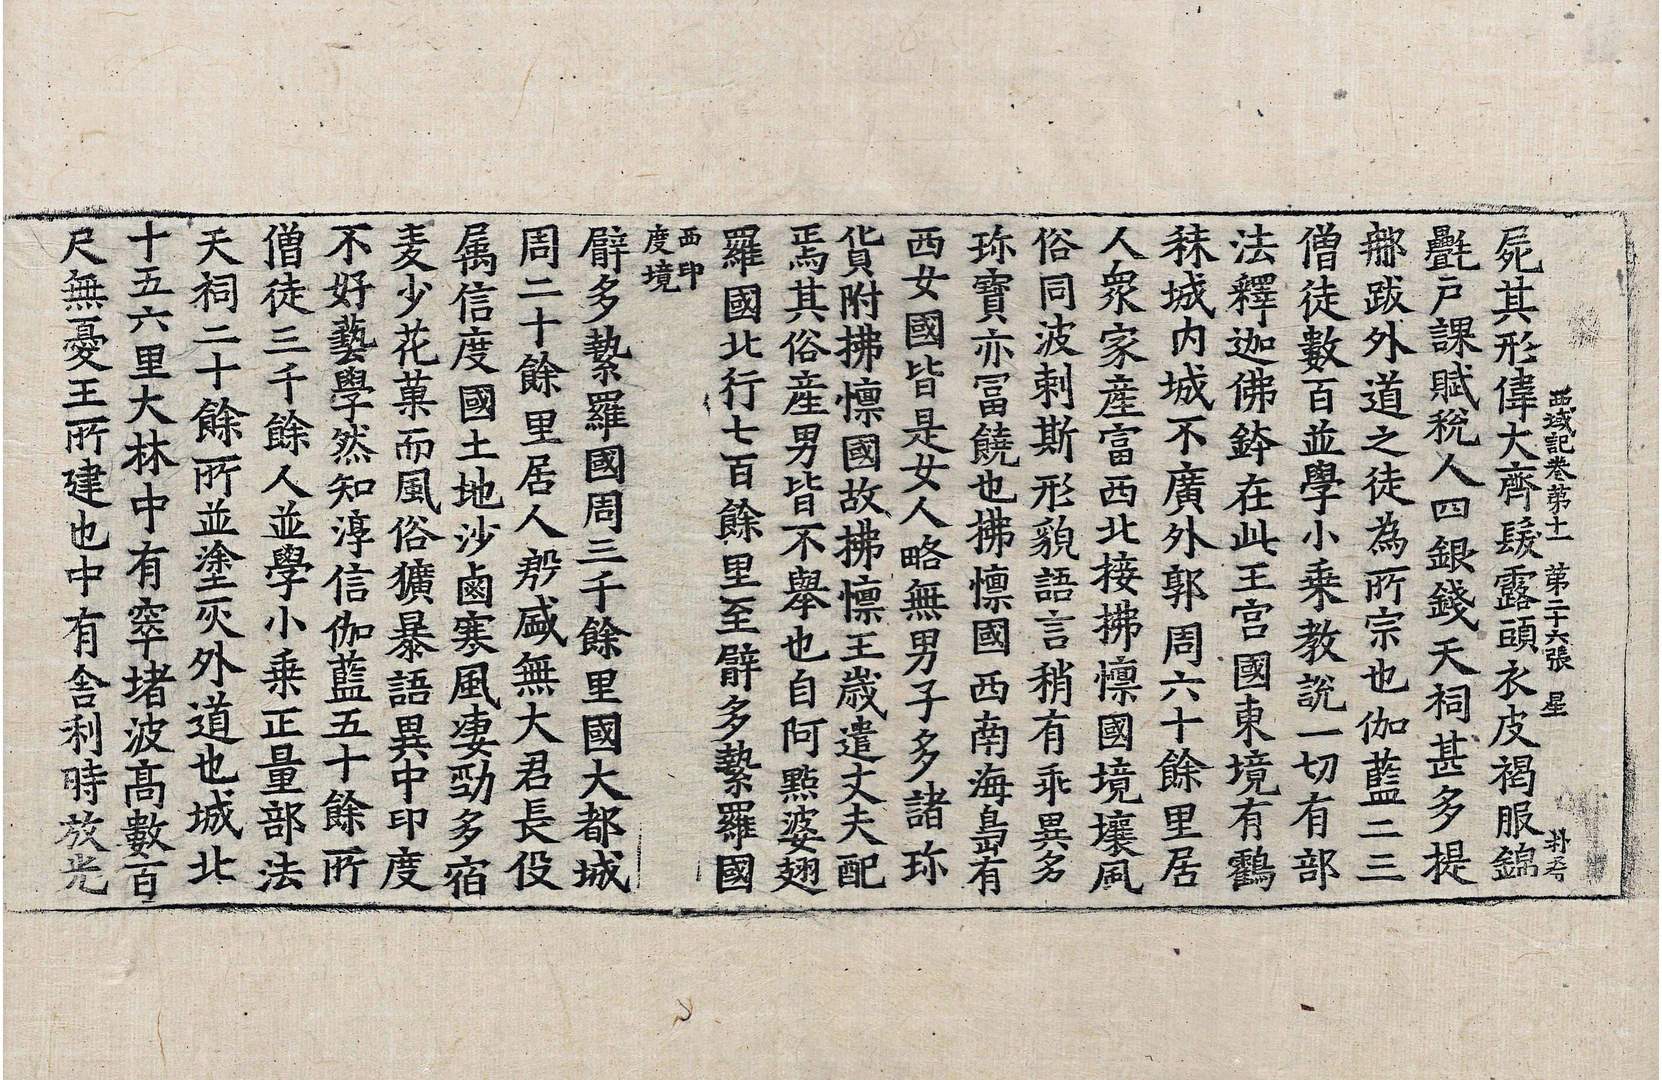 西域記卷第十一 第二十六張 星
屍其形偉大齊髮露頭衣皮褐服錦
㲲戶課賦稅人四銀錢天祠甚多提
那跋外道之徒為所宗也伽藍二三
僧徒數百並學小乘教說一切有部
法釋迦佛鉢在此王宮國東境有鶴
秣城內城不廣外郭周六十餘里居
人衆家產富西北接拂懍國境壤風
俗同波剌斯形貌語言稍有乖異多
珎寶亦冨饒也拂懍國西南海島有
西女國皆是女人略無男子多諸珎
貨附拂懍國故拂懍王歲遣丈夫配
焉其俗產男皆不舉也自阿㸃婆翅
羅國北行七百餘里至臂多䓺羅國
西印
度境
臂多䓺羅國周三千餘里國大都城
周二十餘里居人殷盛無大君長役
属信度國土地沙鹵寒風凄勁多宿
麦少花菓而風俗獷暴語異中印度
不好藝學然知淳信伽藍五十餘所
僧徒三千餘人並學小乘正量部法
天祠二十餘所並塗灰外道也城北
十五六里大林中有窣堵波高數百
尺無憂王所建也中有舍利時放光